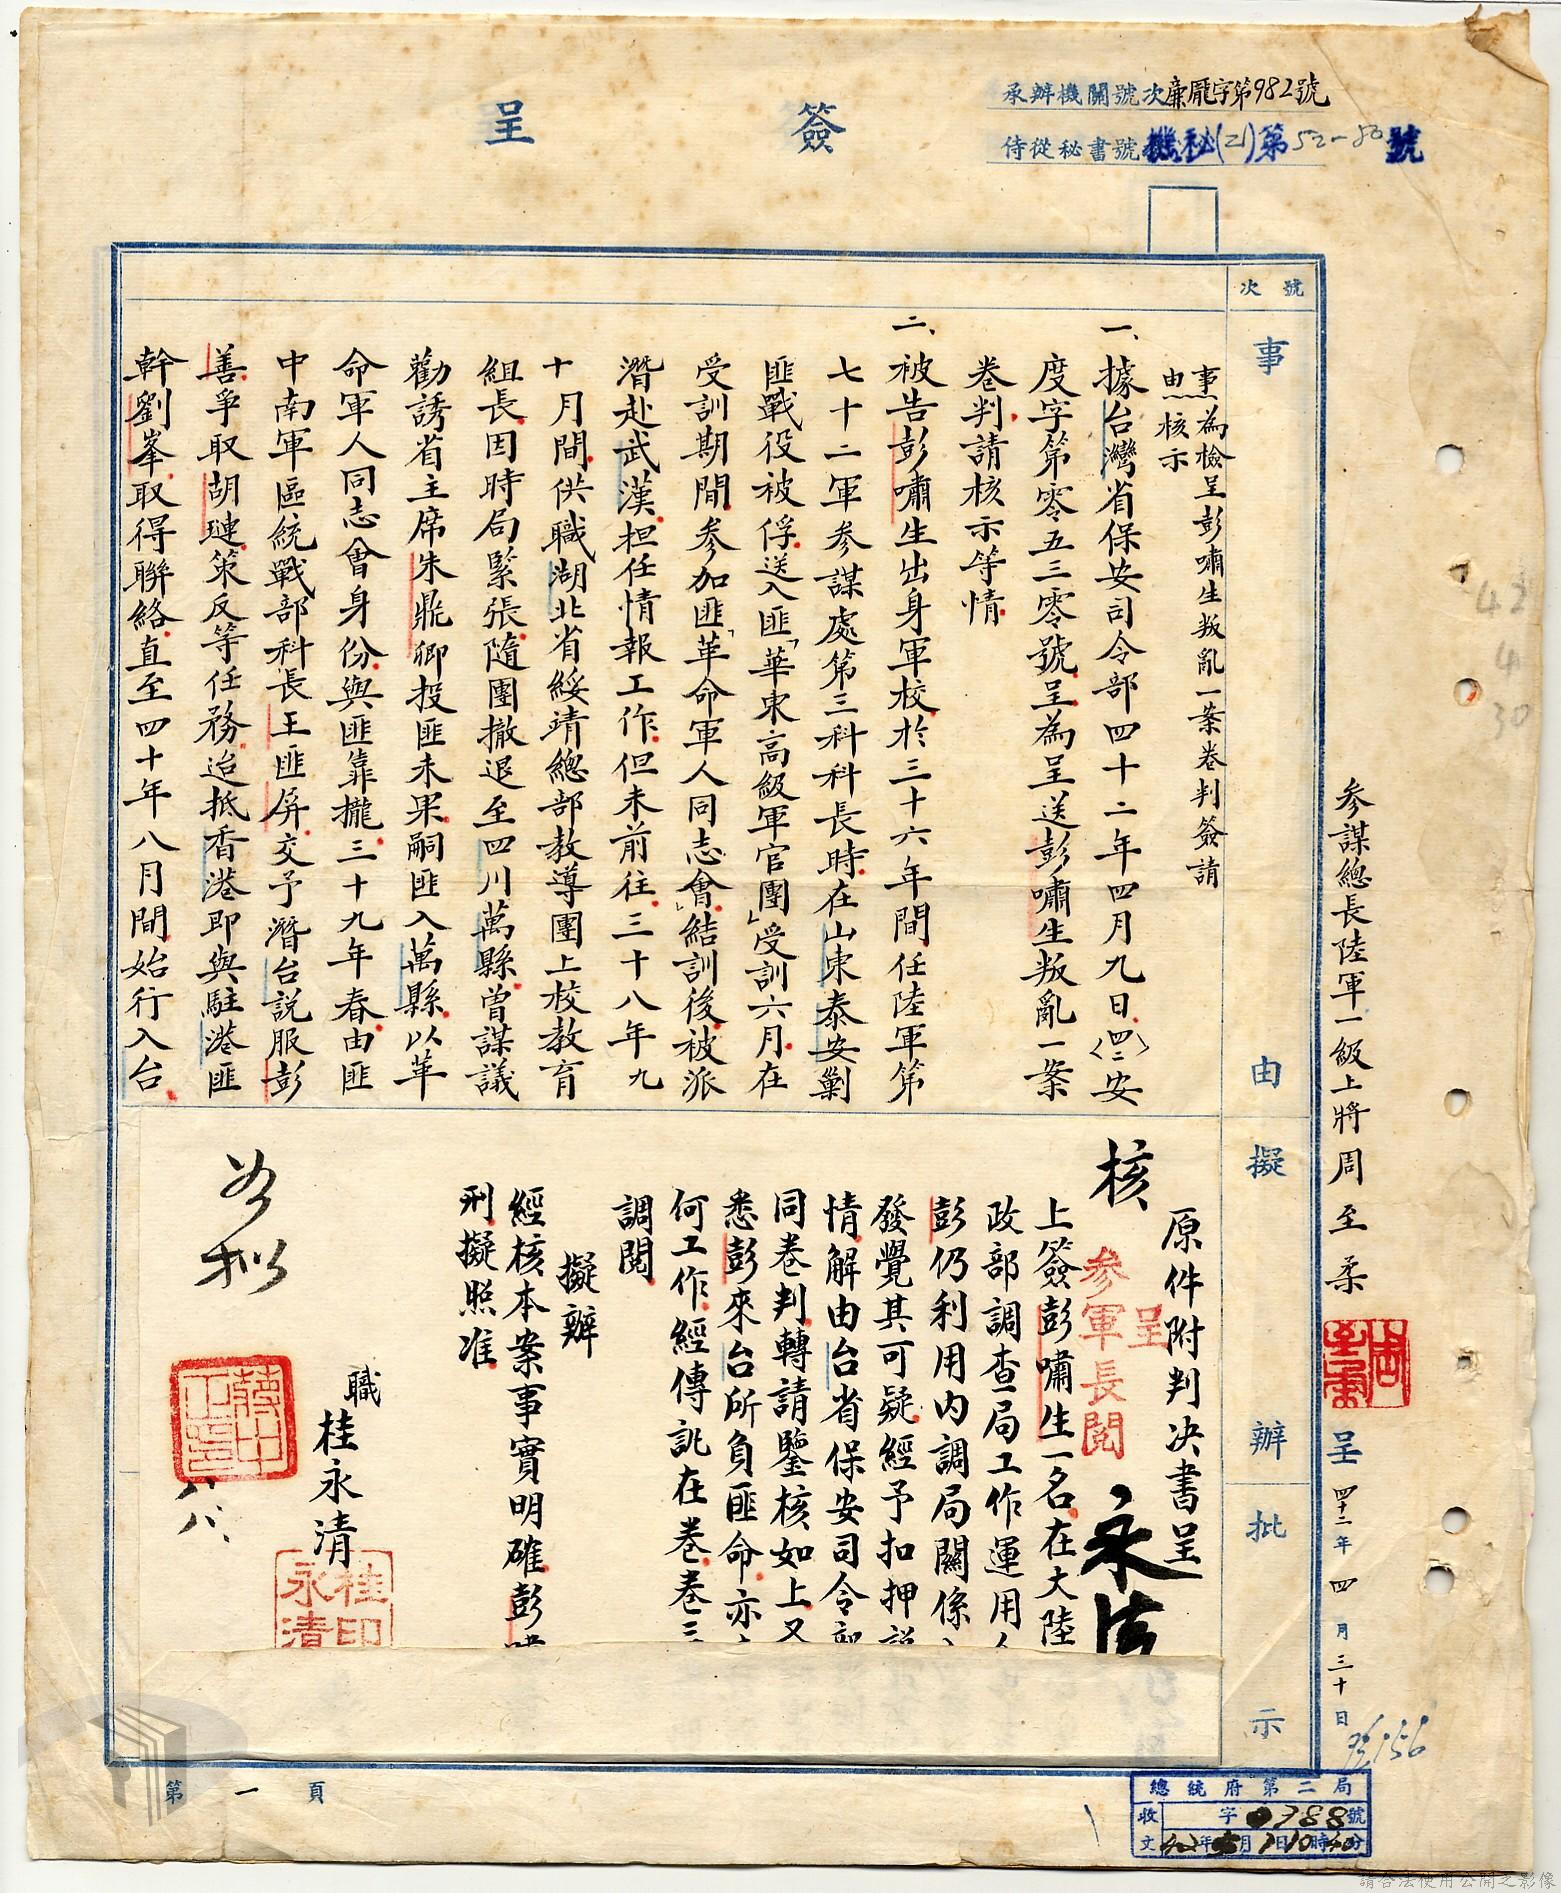 簽呈
承辦機關號次廉龎字第982號
侍從秘書號機秘(乙)第52-80號
號次
事由擬辦批示
參謀總長陸軍一級上將周至柔呈四十二年四月三十日
事由
為檢呈彭嘯生叛亂一案卷判簽請
核示
一、據台灣省保安司令部四十二年四月九日(四二)安
度字第零五三零號呈為呈送彭嘯生叛亂一案
卷判請核示等情
二、被告彭嘯生出身軍校於三十六年間任陸軍第
七十二軍參謀處第三科科長時在山東泰安剿
匪戰役被俘送入匪「華東高級軍官團」受訓六月在
受訓期間參加匪「革命軍人同志會」結訓後被派
潛赴武漢担任情報工作但未前往三十八年九
十月間供職湖北省綏靖總部教導團上校教育
組長因時局緊張隨團撤退至四川萬縣曾謀議
勸誘省主席朱鼎卿投匪未果嗣匪入萬縣以革
命軍人同志會身份與匪靠攏三十九年春由匪
中南軍區統戰部科長王匪屏交予潛台説服彭
善爭取胡璉策反等任務迨抵香港即與駐港匪
幹劉峯取得聯絡直至四十年八月間始行入台
原件附判決書呈
核
呈
參軍長閱
永清
上簽彭嘯生一名在大陸
政部調查局工作運用
彭仍利用內調局關係
發覺其可疑經予扣押
情解由台省保安司令部
同卷判轉請鑒核如上又
悉彭來台所負匪命亦
何工作經傳訊在卷卷三
調閱
擬辦
經核本案事實明確彭
刑擬照准
職桂永清
桂永清印
如擬
蔣中正印
八、八、
42
4
30
第一頁
總統府第二局
收文
字0388號
42年5月1日10時40分
請合法使用公開之影像